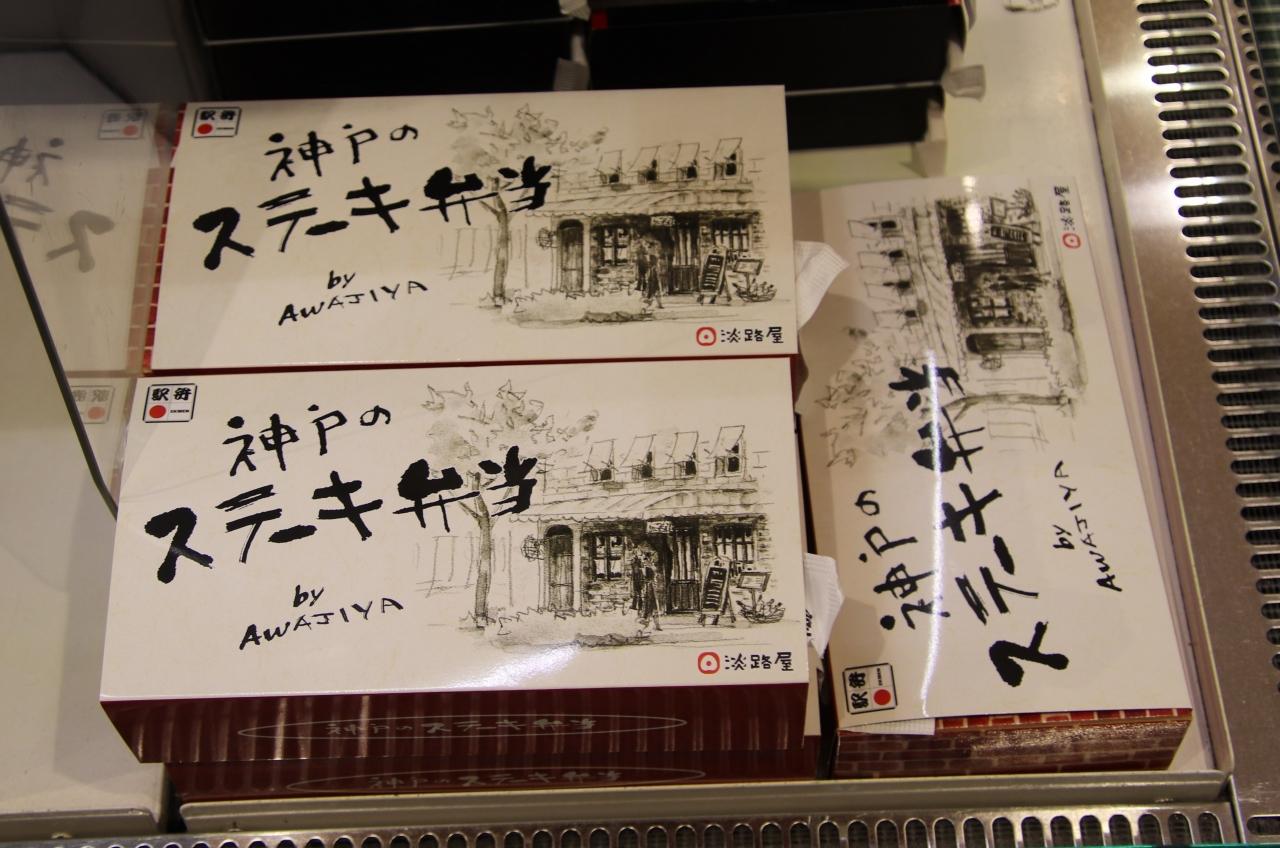 駅弁
神戸の
ステーキ弁当
by
AWAJIYA
淡路屋
駅弁
EKIBEN
神戸の
ステーキ弁当
by
AWAJIYA
淡路屋
神戸のステーキ弁当
神戸のステーキ弁当
駅弁
EKIBEN
神戸の
ステーキ弁当
by
AWAJIYA
淡路屋